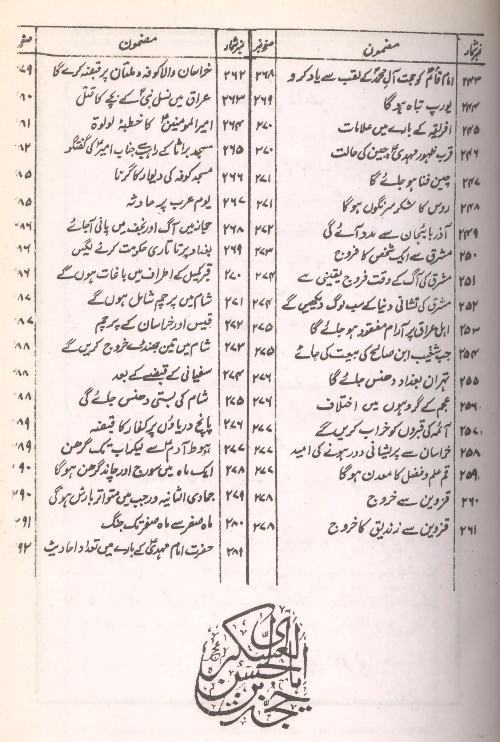 نمبر شمار مضمون صفحہ نمبر
۲۴۳ امام قائمؑ کو حجت آل محمدؐ کے لقب سے یاد کرو ۲۶۸
۲۴۴ یورپ تباہ ہوگا ۲۶۹
۲۴۵ افریقہ کے بارے میں علامات ۲۷۰
۲۴۶ قرب ظہور مہدیؑ چین کی حالت ۲۷۰
۲۴۷ چین فنا ہو جائے گا ۲۷۱
۲۴۸ روس کا لشکر سرنگوں ہوگا ۲۷۱
۲۴۹ آذربائیجان سے مدد آئے گی ۲۷۲
۲۵۰ مشرق سے ایک شخص کا خروج ۲۷۳
۲۵۱ مشرق کی آگ کے وقت فروج یقینی ہے ۲۷۴
۲۵۲ مشرق کی نشانی دنیا کے سب لوگ دیکھیں گے ۲۷۴
۲۵۳ اہل عراق پر آرام مفقود ہو جائے گا ۲۷۵
۲۵۴ جب شعیب ابن صالح کی بیعت کی جائے ۲۷۵
۲۵۵ تہران بغداد دھنس جائے گا ۲۷۶
۲۵۶ عجم کے گروہوں میں اختلاف ۲۷۶
۲۵۷ آئمہ کی قبروں کو خراب کریں گے ۲۷۷
۲۵۸ خراسان سے پریشانی دور ہونے کی امید ۲۷۷
۲۵۹ قم علم و فضل کا معدن ہوگا ۲۷۷
۲۶۰ قزوین سے خروج ۲۷۸
۲۶۱ قزوین سے زندیق کا خروج ۲۷۸
نمبر شمار مضمون صفحہ
۲۶۲ خراسان والا کوفہ و ملتان پر قبضہ کرے گا ۷۹
۲۶۳ عراق میں نسل نبیؐ کے بچے کا قتل ۸۰
۲۶۴ امیر المومنینؑ کا خطبۂ لولوۃ ۸۱
۲۶۵ مسجد براثا کے راہب سے جناب امیرؑ کی گفتگو ۸۲
۲۶۶ مسجد کوفہ کی دیوار کا گرنا ۸۵
۲۶۷ یوم عرب پر حادثہ ۸۵
۲۶۸ حجاز میں آگ اور نجف میں پانی آجائے ۸۶
۲۶۹ بغداد پر تاتاری حکومت کرنے لگیں ۸۶
۲۷۰ قبر کمیل کے اطراف میں باغات ہوں گے ۸۶
۲۷۱ شام میں پرچم شامل ہوں گے ۸۷
۲۷۲ قیس اور خراسان کے پرچم ۸۷
۲۷۳ شام میں تین جھنڈے خروج کریں گے ۸۸
۲۷۴ سفیانی کے قبضے کے بعد ۸۸
۲۷۵ شام کی بستی دھنس جائے گی ۸۸
۲۷۶ پانچ دریاؤں پر کفار کا قبضہ ۸۹
۲۷۷ ہبوط آدمؑ سے لیکر اب تک گرہن ۸۹
۲۷۸ ایک ماہ میں سورج اور چاند گرہن ہوگا ۹۰
۲۷۹ جمادی الثانیہ و رجب میں متواتر بارش ہوگی ۲۹۰
۲۸۰ ماہ صفر سے ماہ صفر تک جنگ ۹۱
۲۸۱ حضرت امام مہدیؑ کے بارے میں تعداد احادیث ۹۲
حجت بن الحسن العسکری